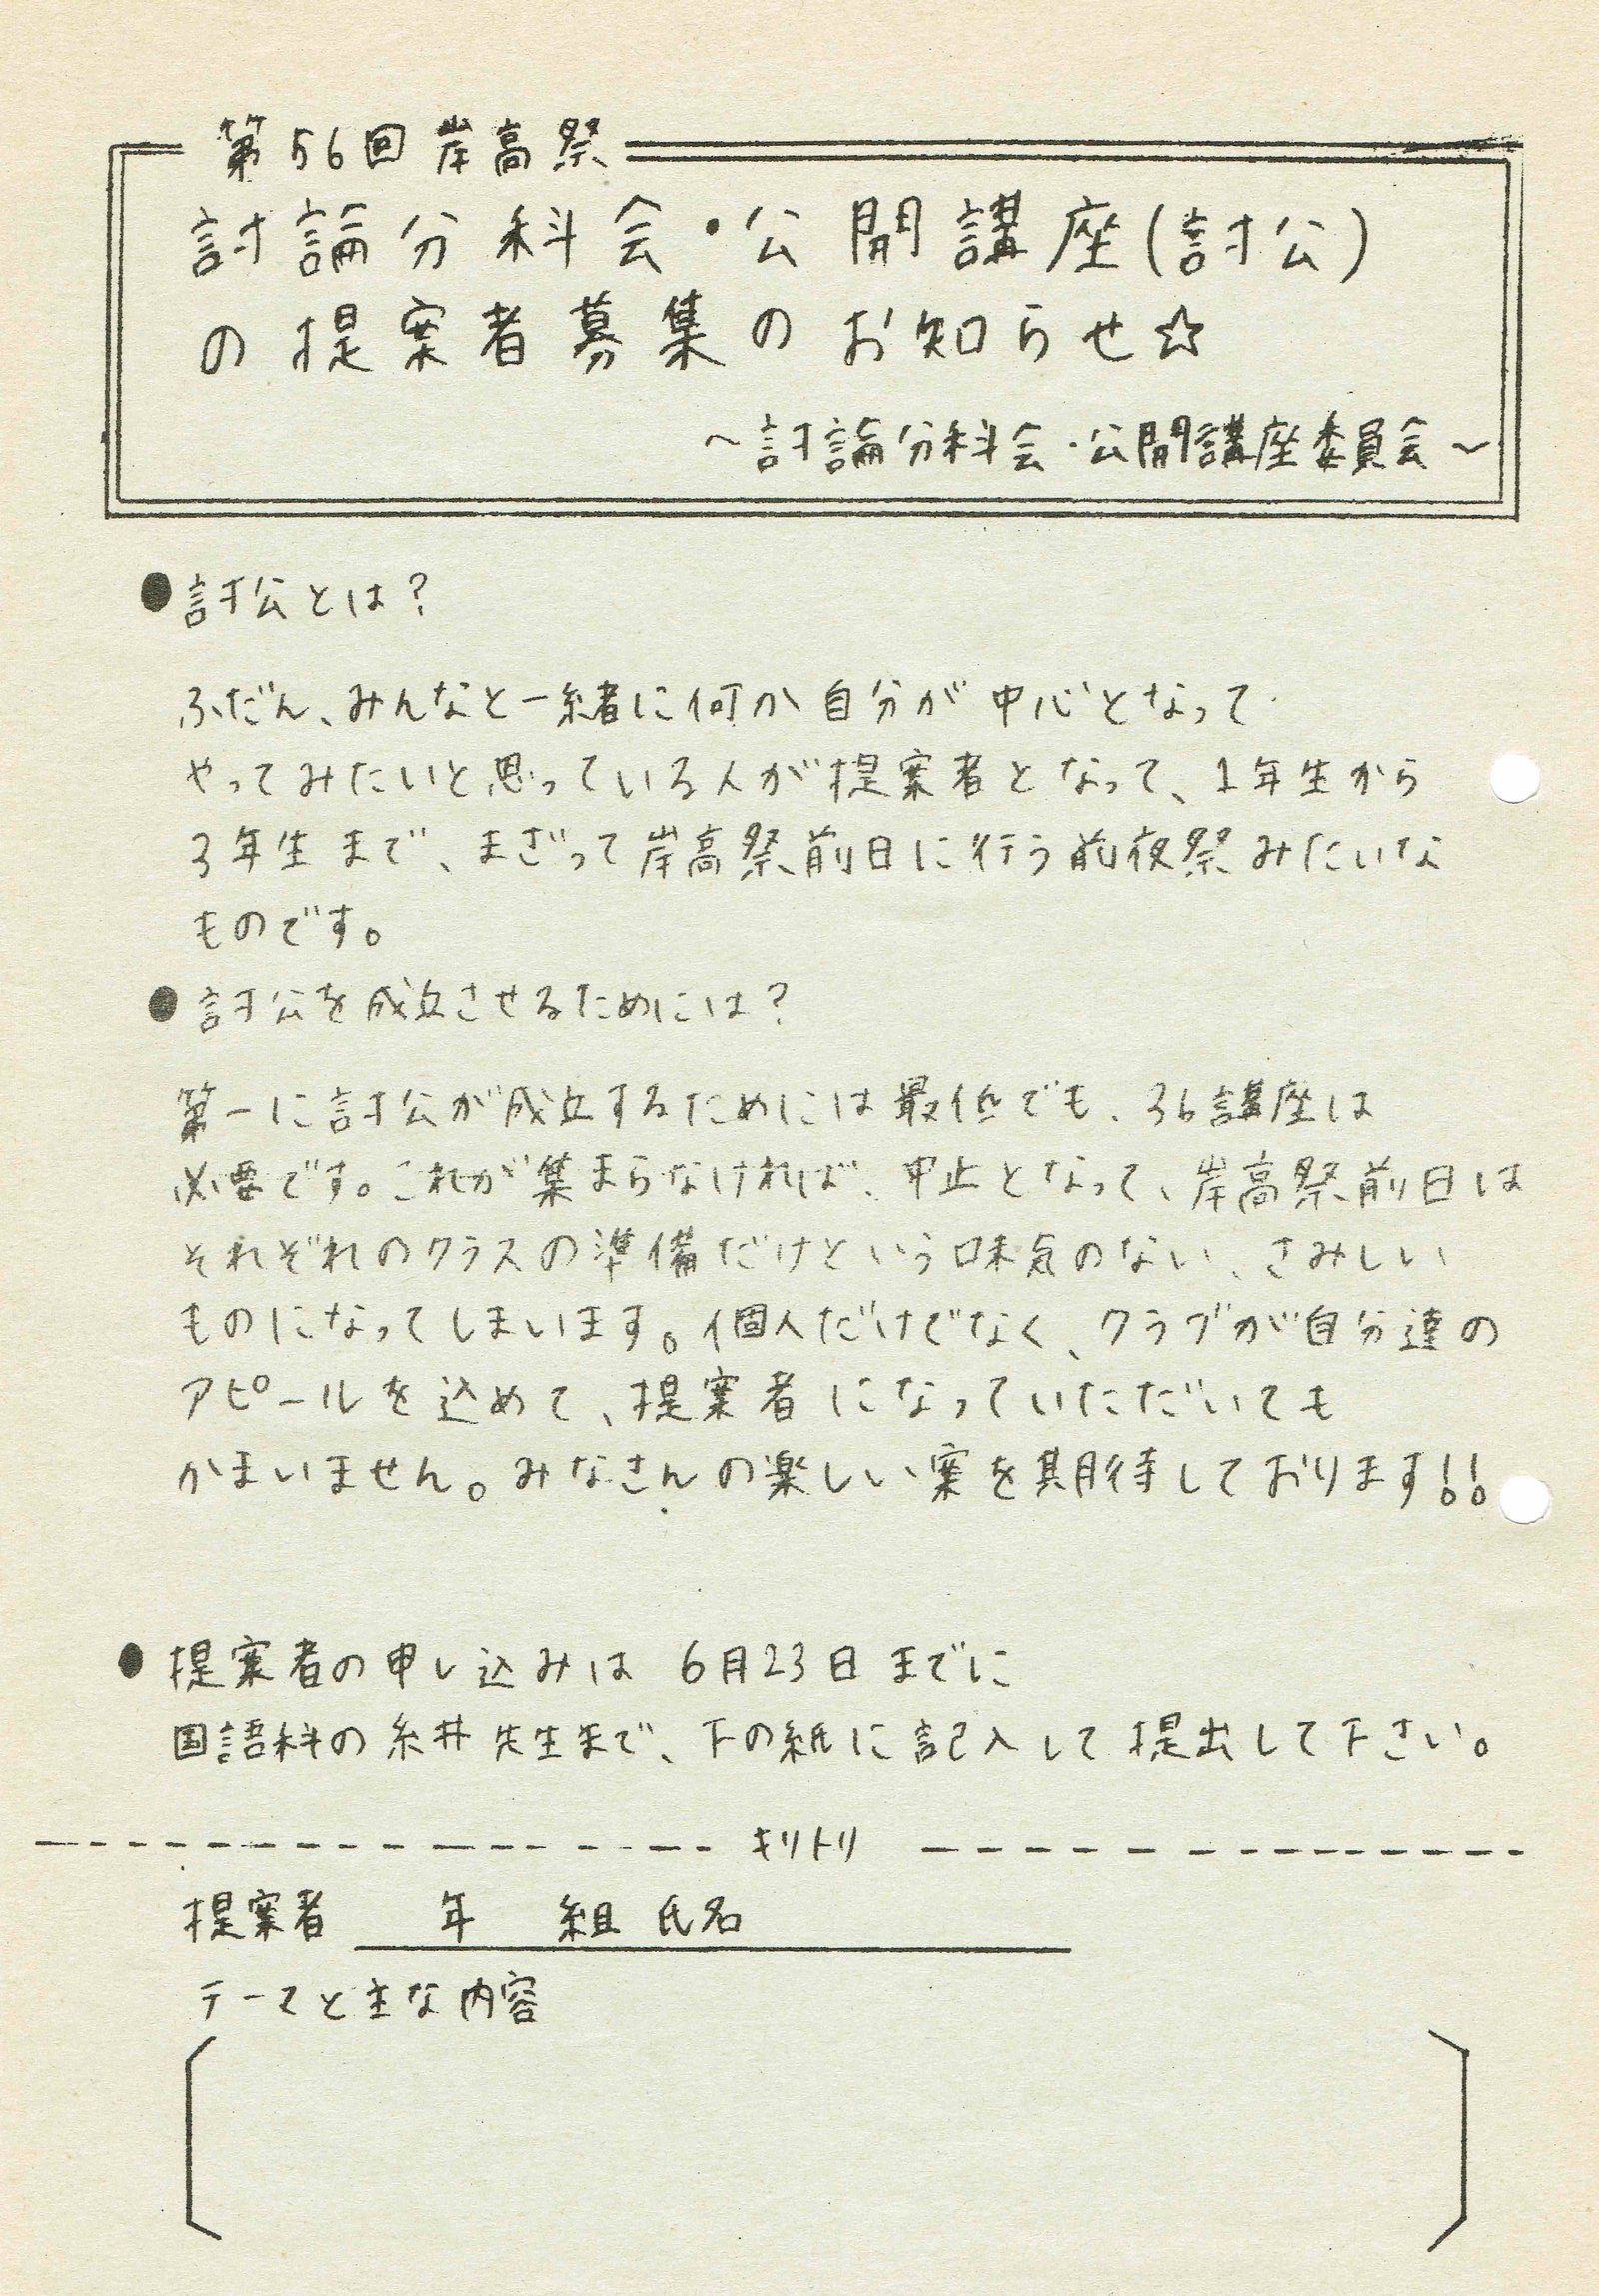 第56回岸高祭
討論分科会・公開講座(討公)
の提案者募集のお知らせ☆
～討論分科会・公開講座委員会～
●討公とは？
ふだん、みんなと一緒に何か自分が中心となって
やってみたいと思っている人が提案者となって、1年生から
3年生まで、まざって岸高祭前日に行う前夜祭みたいな
ものです。
●討公を成立させるためには？
第一に討公が成立するためには最低でも、36講座は
必要です。これが集まらなければ、中止となって、岸高祭前日は
それぞれのクラスの準備だけという味気のない、さみしい
ものになってしまいます。個人だけでなく、クラブが自分達の
アピールを込めて、提案者になっていただいても
かまいません。みなさんの楽しい案を期待しております!!
●提案者の申し込みは 6月23日までに
国語科の糸井先生まで、下の紙に記入して提出して下さい。
キリトリ
提案者 年 組 氏名
テーマと主な内容